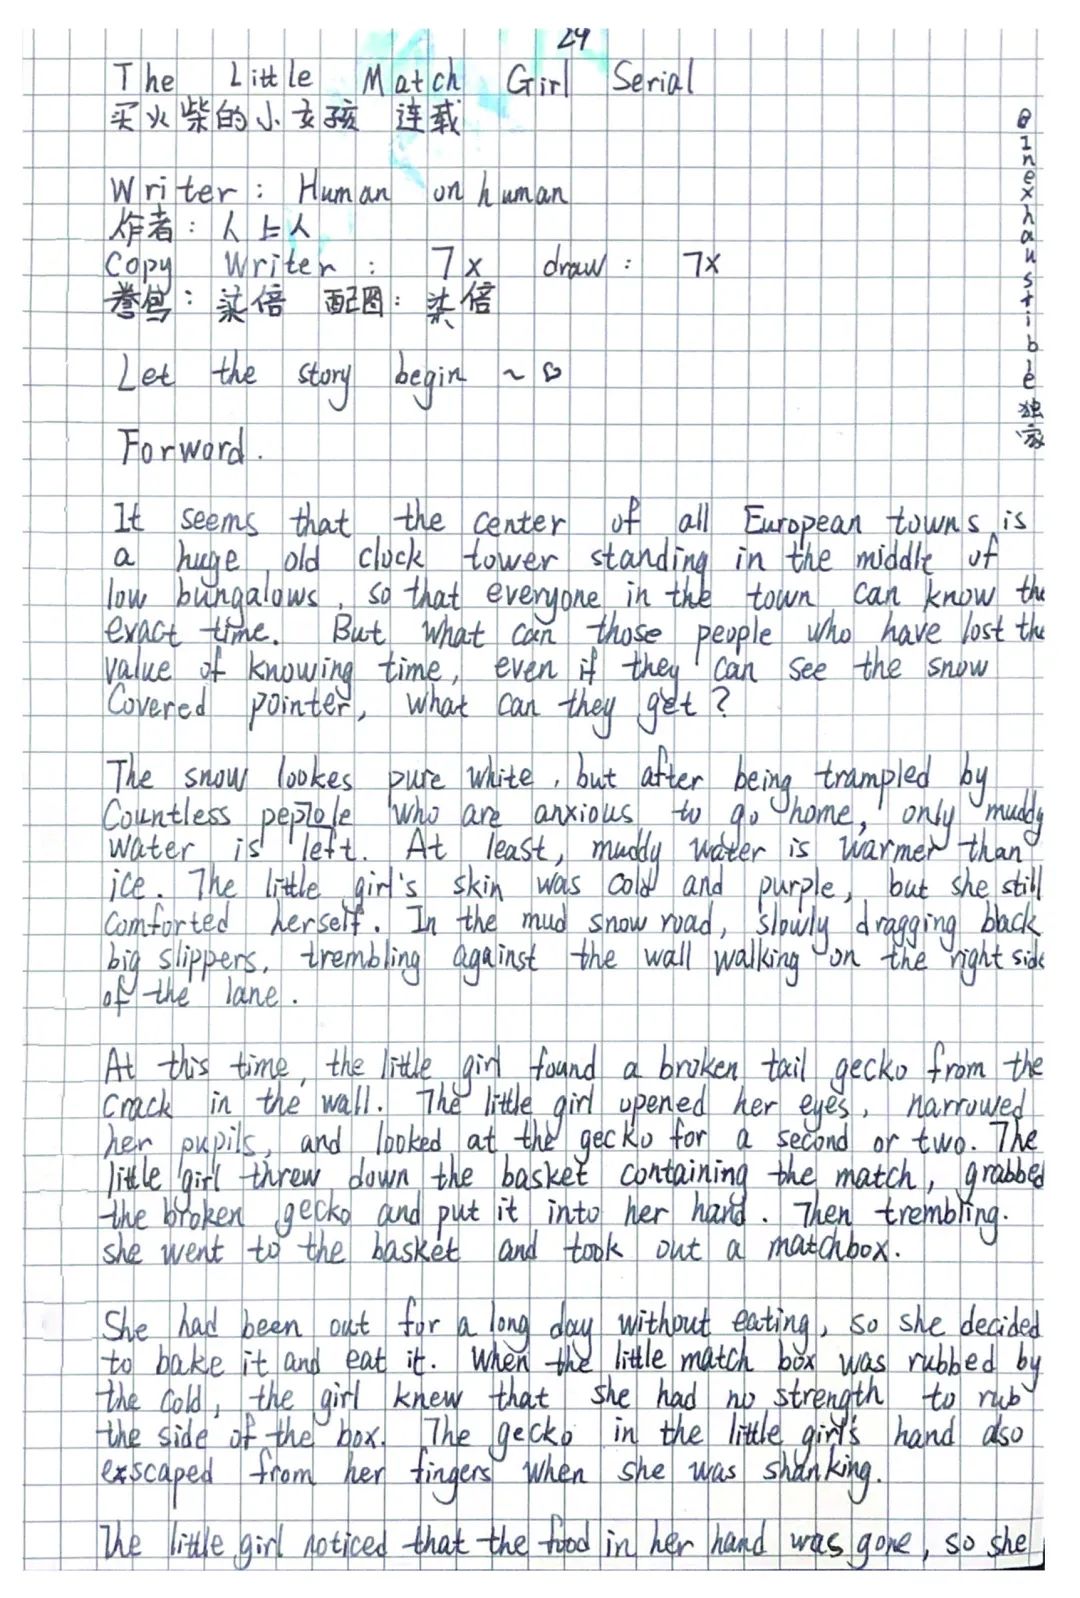 24
The Little Match Girl Serial
买火柴的小女孩 连载
Writer: Human on human
作者: 人上人
Copy Writer: 7x draw: 7x
誊写: 柒倍 配图: 柒倍
Let the story begin ~ ♡
Forword.
It seems that the center of all European towns is
a huge old clock tower standing in the middle of
low bungalows, so that everyone in the town can know the
exact time. But what can those people who have lost the
value of knowing time, even if they can see the snow
Covered pointer, what can they get?
The snow lookes pure white, but after being trampled by
Countless people who are anxious to go home, only muddy
water is left. At least, muddy water is warmer than
ice. The little girl's skin was cold and purple, but she still
comforted herself. In the mud snow road, slowly dragging back
big slippers, trembling against the wall walking on the right side
of the lane.
At this time, the little girl found a broken tail gecko from the
crack in the wall. The little girl opened her eyes, narrowed
her pupils, and looked at the gecko for a second or two. The
little girl threw down the basket containing the match, grabbed
the broken gecko and put it into her hand. Then trembling.
she went to the basket and took out a matchbox.
She had been out for a long day without eating, so she decided
to bake it and eat it. When the little match box was rubbed by
the cold, the girl knew that she had no strength to rub
the side of the box. The gecko in the little girl's hand also
exscaped from her fingers when she was shanking.
The little girl noticed that the food in her hand was gone, so she
@Inexhaustible独家